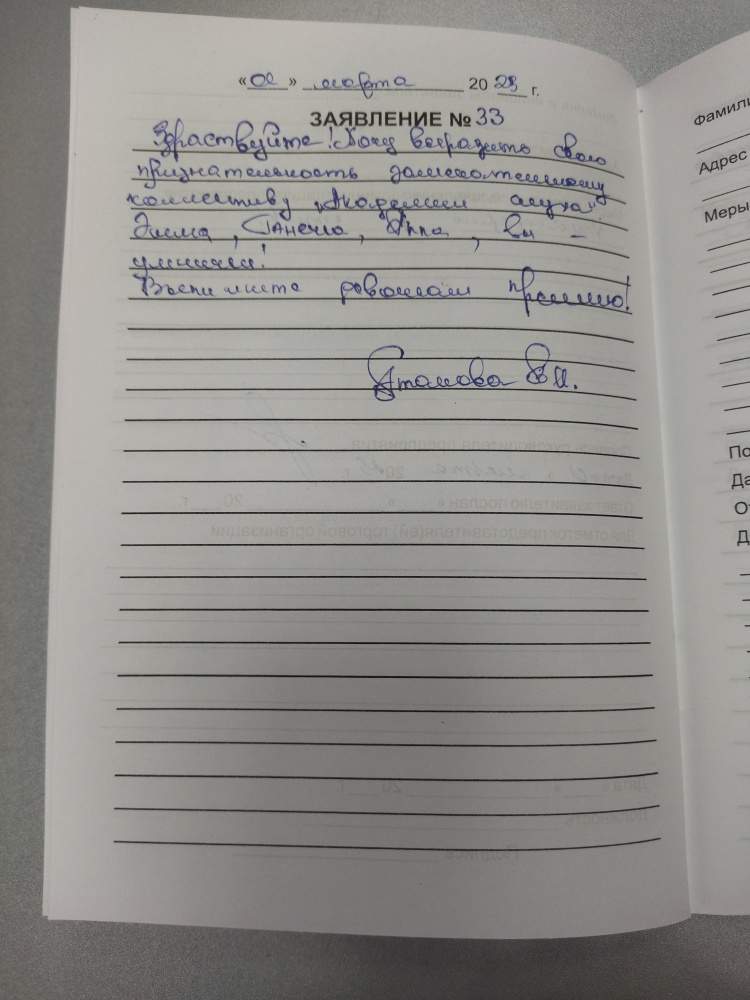 « » марта 2023 г.
ЗАЯВЛЕНИЕ № 33
Здраствуйте! Хочу выразить свою
признательность замечательному
коллективу „Академии слуха"
Элина, Танечка, Анна, вы -
умнички!
Выпишите девочкам премию!
Фамили
Адрес
Меры
По
Да
От
Д